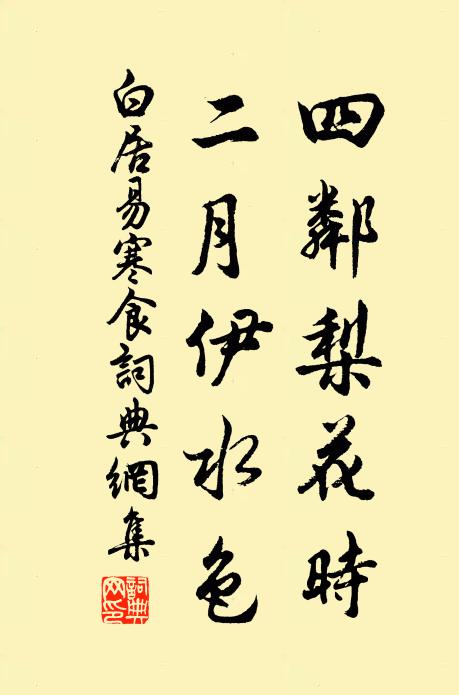 四鄰梨花時
二月伊水色
白居易寒食詞典網集
詞典網印